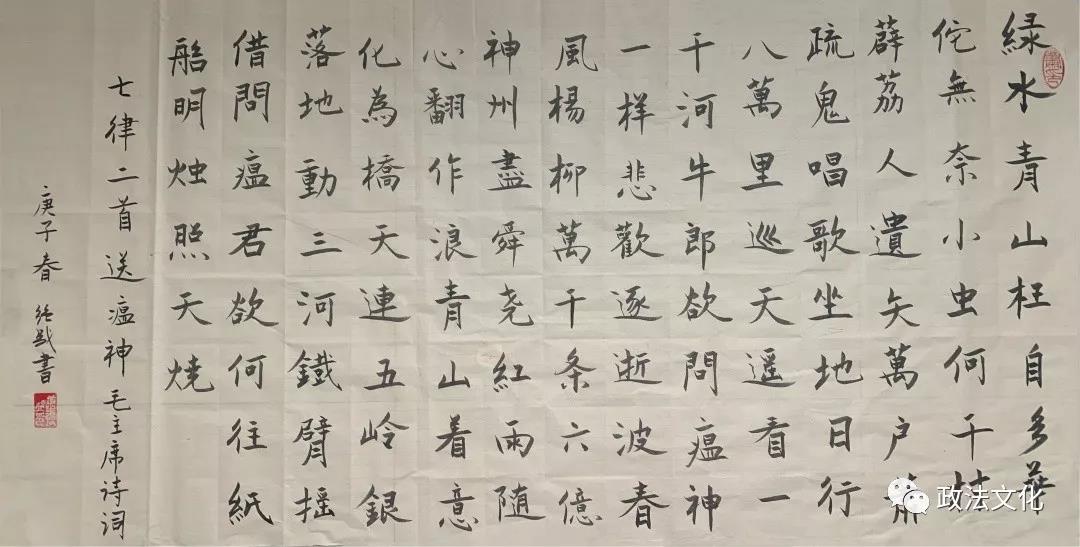 綠水青山枉自多華
佗無奈小虫何千村
薜荔人遺矢萬户蕭
疏鬼唱歌坐地日行
八萬里巡天遥看一
千河牛郎欲問瘟神
一样悲歡逐逝波春
風楊柳萬千条六億
神州盡舜尧紅雨随
心翻作浪青山着意
化為橋天連五岭銀
落地動三河鐵臂摇
借問瘟君欲何往紙
船明烛照天燒
七律二首送瘟神毛主席诗词
庚子春 書
政法文化